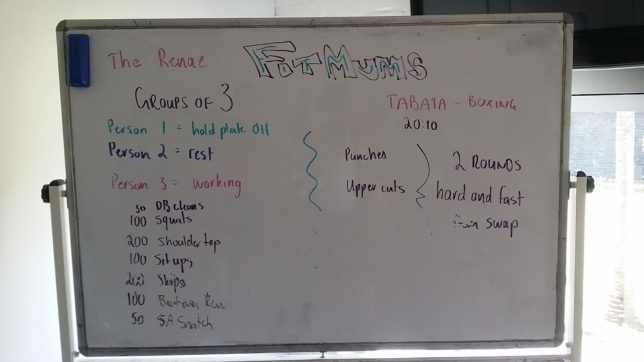 The Renae
FitMums
GROUPS OF 3
Person 1 = hold plate OH
Person 2 = rest
Person 3 = working
50 DB cleans
100 Squats
200 Shoulder tap
100 Sit ups
200 Skips
100
50 SA Snatch
TABATA - BOXING
20:10
Punches
Upper cuts
2 ROUNDS
hard and fast
swap